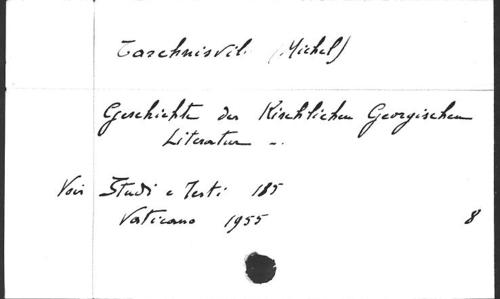 Tarchnisvili (Michel)
Geschichte der Kirchlichen Georgischen
Literatur ..
Voir Studi e Testi 185
Vaticano 1955 8